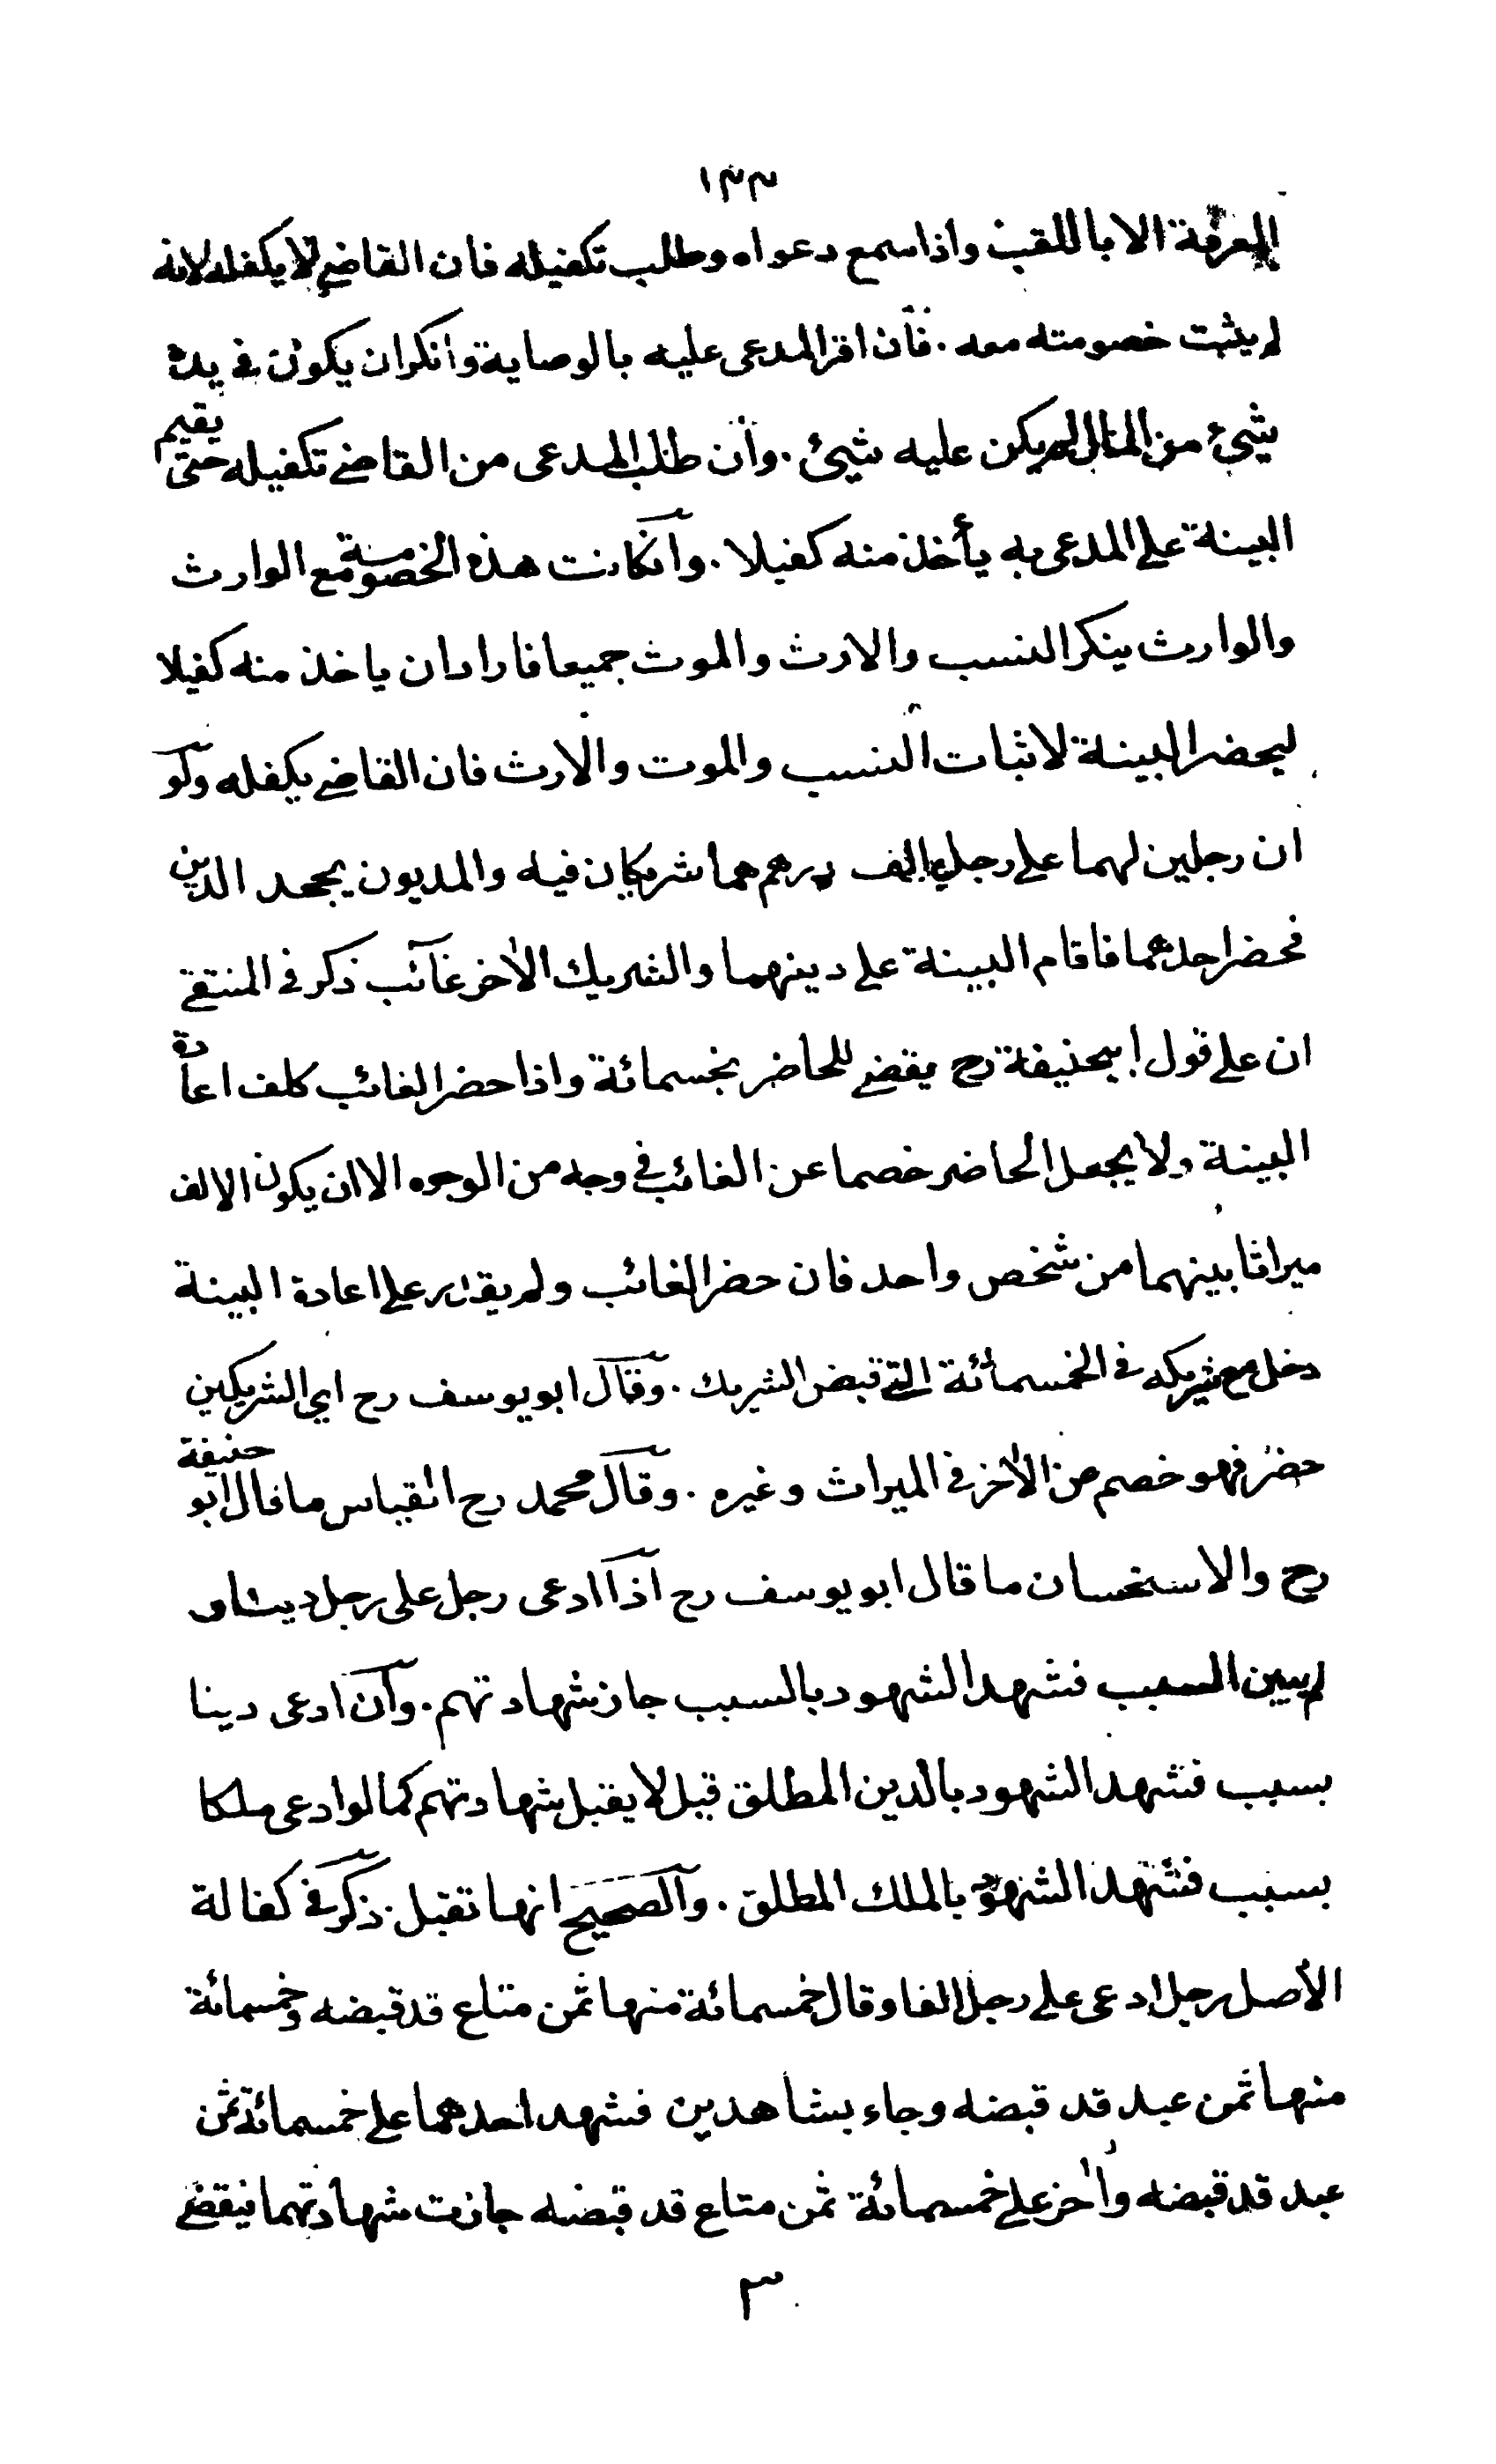 ١٣٣
المعرفة الا باللقب واذا سمع دعواه وطلب تكفيله فان القاضي لا يكفله لانه
لم يثبت خصومته معه . فان اقر المدعى عليه بالوصاية وانكر ان يكون في يده
شيئ من المال لم يكن عليه شيئ . وان طلب المدعى من القاضي تكفيله حتى يقيم
البينة على المدعى به يأخذ منه كفيلا . وانكانت هذه الخصومة مع الوارث
والوارث ينكر النسب والارث والموت جميعا فاراد ان ياخذ منه كفيلا
ليحضر البينة لاثبات النسب والموت والارث فان القاضي يكفله ولو
ان رجلين لهما على رجل الف درهم هما شريكان فيه والمديون يجحد الدين
فحضر احدهما فاقام البينة على دينهما والشريك الاخر غائب ذكر في المنتقى
ان على قول ابيحنيفة رح يقضي للحاضر بخمسمائة واذا حضر الغائب كلف اعادة
البينة ولا يجعل الحاضر خصما عن الغائب في وجه من الوجوه الا ان يكون الالف
ميراثا بينهما من شخص واحد فان حضر الغائب ولم يقدر على اعادة البينة
دخل مع شريكه في الخمسمائة التي قبض الشريك . وقال ابو يوسف رح اي الشريكين
حضر فهو خصم من الاخر في الميراث وغيره . وقال محمد رح القياس ما قال ابو حنيفة
رح والاستحسان ما قال ابو يوسف رح اذا ادعى رجل على رجل دينا و
لم يبين السبب فشهد الشهود بالسبب جاز شهادتهم . وان ادعى دينا
بسبب فشهد الشهود بالدين المطلق قيل لا يقبل شهادتهم كما لو ادعى ملكا
بسبب فشهد الشهود بالملك المطلق . والصحيح انها تقبل . ذكر في كفالة
الأصل رجل ادعى على رجل الفا وقال خمسمائة منها ثمن متاع قد قبضه وخمسمائة
منها ثمن عبد قد قبضه وجاء بشاهدين فشهد احدهما على خمسمائة ثمن
عبد قد قبضه واخر على خمسمائة ثمن متاع قد قبضه جازت شهادتهما فيقضي
٣